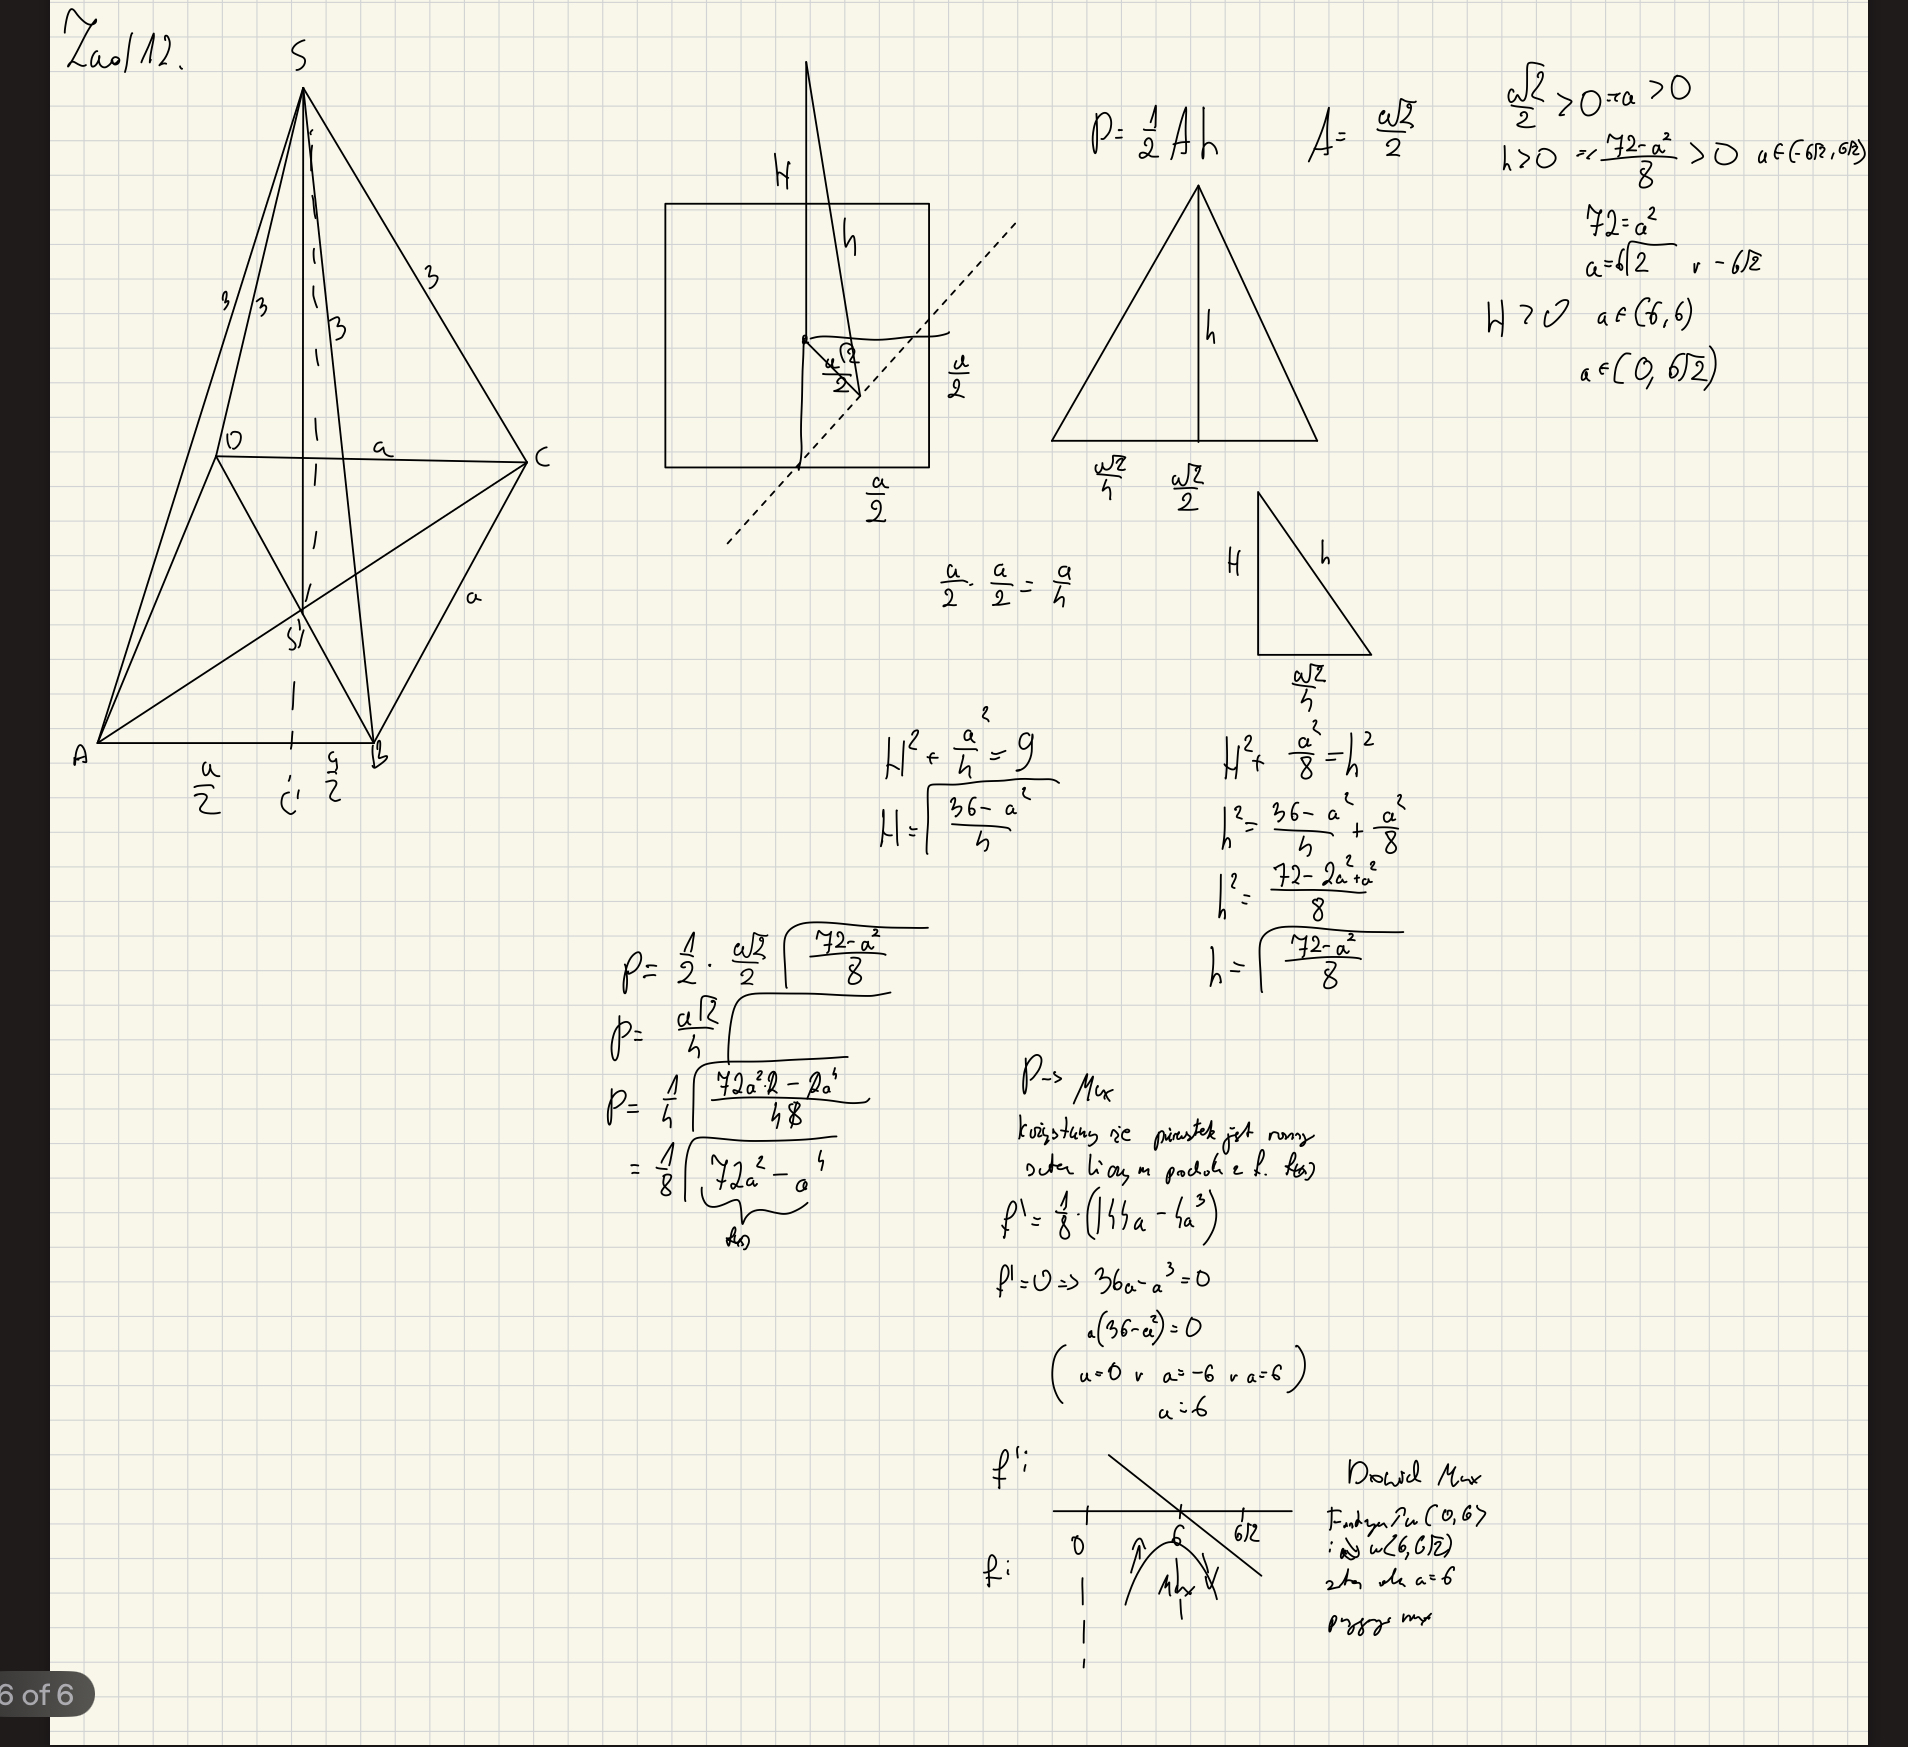 Zad 12.
S
3
3
3
3
D
a
C
a
S'
A
a/2
C'
a/2
B
H
h
a√2/2
a/2
a/2
P = 1/2 A h
A = a√2/2
h
a√2/4
a√2/2
a/2 · a/2 = a/4
H
h
a√2/4
a√2/2 > 0 => a > 0
h > 0 => 72-a²/8 > 0 a ∈ (-6√2, 6√2)
72 = a²
a = 6√2 v -6√2
H > 0 a ∈ (-6, 6)
a ∈ (0, 6√2)
H² + a²/4 = 9
H = √(36 - a²/4)
H² + a²/8 = h²
h² = 36 - a²/4 + a²/8
h² = 72 - 2a² + a²/8
h = √(72 - a²/8)
P = 1/2 · a√2/2 √(72 - a²/8)
P = a√2/4 √
P = 1/4 √(72a²·2 - 2a⁴/48)
= 1/8 √(72a² - a⁴)
f(a)
P -> Max
że pierwiastek jest
f. f(a)
f' = 1/8 · (144a - 4a³)
f' = 0 => 36a - a³ = 0
a(36 - a²) = 0
(a = 0 v a = -6 v a = 6)
a = 6
f':
0
6
6√2
f:
Max
Dowód Max
Funkcja ↗ w (0, 6>
i ↘ w <6, 6√2)
zatem dla a = 6
przyjmuje max
6 of 6